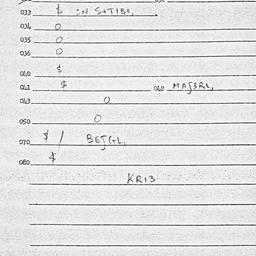 033 $ IN S+TIBL,
034 0
035 0
036 0
040 $
041 $ 042 MAJ3RL,
043 0
050 0
070 $ / BEJGL,
080 $
KR13